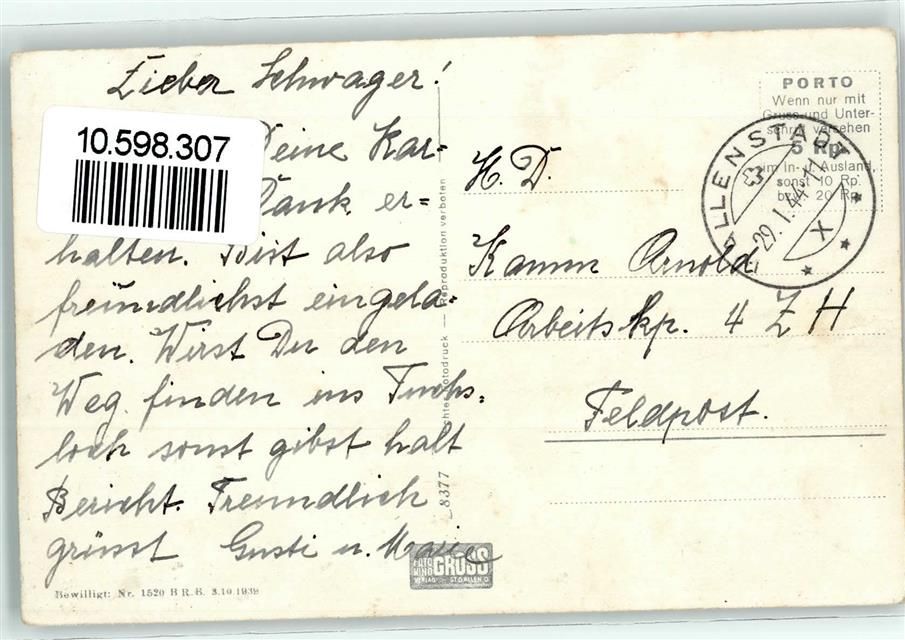 Lieber Schwager!
10.598.307
Deine Kar-
Dank er=
halten. Bist also
freundlichst eingela-
den. Wirst Du den
Weg finden ins Fuchs=
loch sonst gibst halt
Bericht. Freundlich
grüsst Gusti u.
Bewilligt: Nr. 1520 B R.B. 3.10.1939
8377
Echte Photodruck — Reproduktion verboten
FOTO
GROSS
VERLAG ST. GALLEN O
PORTO
Wenn nur mit
Gruss und Unter-
schrift versehen
5 Rp.
im In- u. Ausland,
sonst 10 Rp.
bzw. 20 Rp.
29.I.44
X
H. D.
Kamm Arnold
Arbeitskp. 4 Z H
Feldpost.